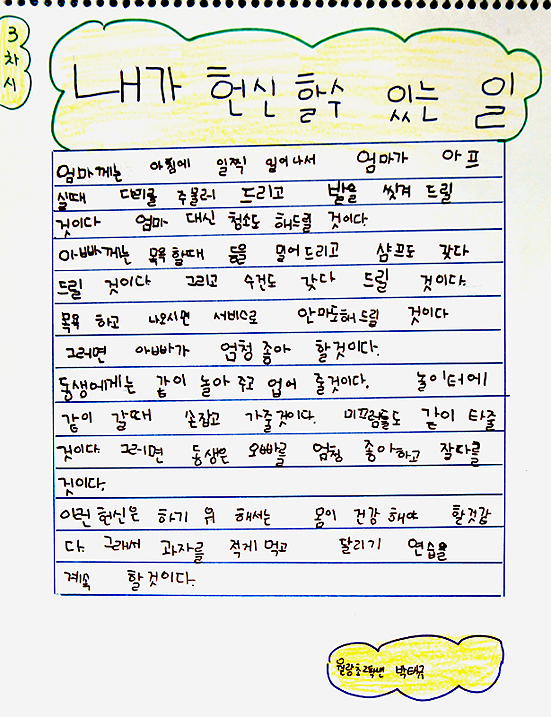 3
차
시
내가 헌신 할수 있는 일
엄마께는 아침에 일찍 일어나서 엄마가 아프
실때 다리를 주물러 드리고 발을 씻겨 드릴
것이다 엄마 대신 청소도 해드릴 것이다.
아빠께는 목욕 할때 등을 밀어드리고 샴프도 갖다
드릴 것이다 그리고 수건도 갖다 드릴 것이다.
목욕 하고 나오시면 서비스로 안마도해드림 것이다
그러면 아빠가 엄청좋아 할것이다.
동생에게는 같이 놀아 주고 업어 줄것이다. 놀이터에
같이 갈때 손잡고 가줄것이다. 미끄럼틀도 같이 타줄
것이다 그러면 동생은 오빠를 엄청 좋아하고 잘따를
것이다.
이런 헌신은 하기 위 해서는 몸이 건강 해야 할것같
다. 그래서 과자를 적게먹고 달리기 연습을
계속 할것이다.
월랑초2학년 박태규